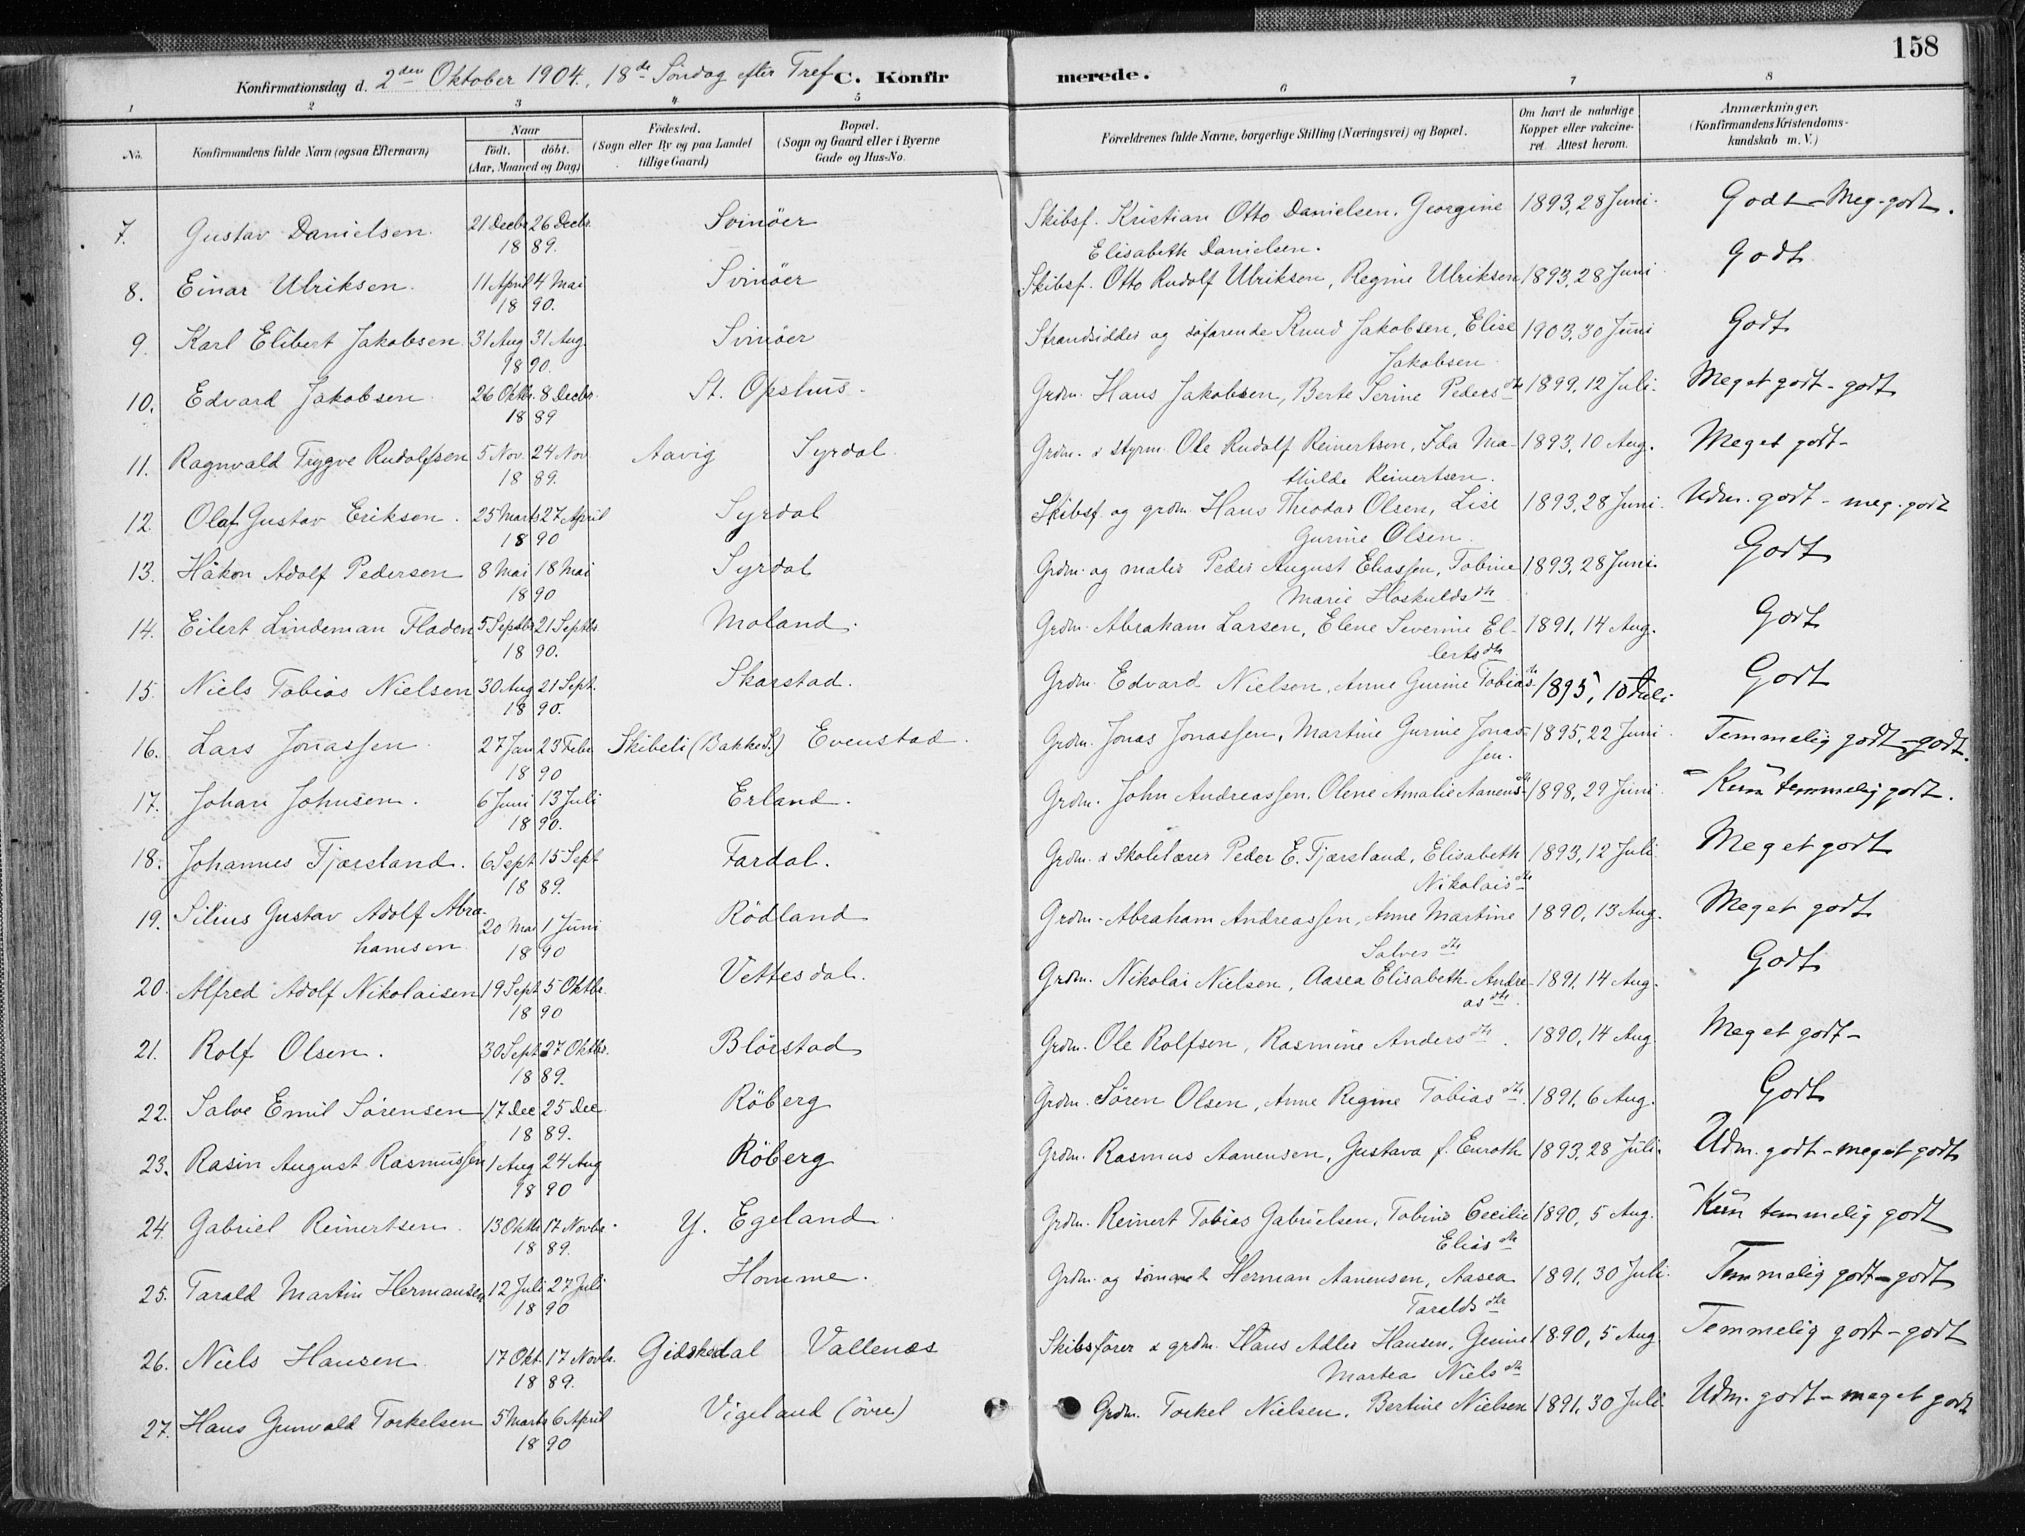 158
Konfirmationsdag d. 2den Oktober 1904. 18de Söndag efter Tref. C. Konfirmerede.
1 2 3 4 5 6 7 8
No. Konfirmandens fulde Navn (ogsaa Efternavn) Naar födt. döbt. (Aar, Maaned og Dag) Födested. (Sogn eller By og paa Landet tillige Gaard) Bopæl. (Sogn og Gaard eller i Byerne Gade og Hus-No. Forældrenes fulde Navne, borgerlige Stilling (Næringsvei) og Bopæl. Om havt de naturlige Kopper eller vakcineret. Attest herom. Anmærkninger. (Konfirmandens Kristendomskundskab m.V.)
7. Gustav Danielsen. 21 Decbr 26 Decbr. Svinöer Skibsf. Kristian Otto Danielsen. Georgine 1893, 28 Juni. Godt - Meg. godt.
1889. Elisabeth Danielsen.
8. Einar Ulriksen. 11 April 4 Mai Svinöer Skibsf. Otto Rudolf Ulriksen, Regine Ulriksen 1893, 28 Juni Godt
1890.
9. Karl Elibert Jakobsen 31 Aug 31 Aug. Svinöer Strandsidder og söfarende Knud Jakobsen, Elise 1903, 30 Juni Godt
1890. Jakobsen.
10. Edvard Jakobsen. 26 Oktbr. 8 Decbr. St. Opshus. Grdm. Hans Jakobsen, Berte Serine Pedersdtr 1899, 12 Juli. Meget godt - godt
1889
11. Ragnvald Trygve Rudolfsen 5 Nov. 24 Nov Aavig Syrdal. Grdm. & styrm. Ole Rudolf Reinertsen, Ida Ma- 1893, 10 Aug. Meget godt-
1889. thilde Reinertsen.
12. Olaf Gustav Eriksen. 25 Marts 27 April Syrdal Skibsf. og grdm. Hans Theodor Olsen, Lise 1893, 28 Juni. Udm. godt - meg. godt
1890 Gurine Olsen.
13. Håkon Adolf Pedersen 8 Mai 18 Mai Syrdal Grdm. og maler Peder August Eliassen, Tobine 1893, 28 Juni. Godt
1890 Marie Hoskuldsdtr
14. Eilert Lindeman Fladen 5 Septbr 21 Septbr Moland. Grdm. Abraham Larsen, Elene Severine El- 1891, 14 Aug. Godt
1890. lertsdtr
15. Niels Tobias Nielsen 30 Aug 21 Sept. Skarstad. Grdm. Edvard Nielsen, Anne Gurine Tobiasdtr 1895, 10 Juli. Godt
1890.
16. Lars Jonassen. 27 Jan 23 Febr. Skibeli (Bakke S.) Evenstad. Grdm. Jonas Jonassen, Martine Gurine Jonas- 1895, 22 Juni. Temmelig godt - godt.
1890 sen.
17. Johan Johnsen. 6 Juni 13 Juli Erland. Grdm. John Andreassen. Olene Amalie Aanensdtr 1898, 29 Juni - Kun temmelig godt.
1890.
18. Johannes Tjærsland. 6 Sept 15 Sept Fardal. Grdm. & skolelærer Peder E. Tjærsland, Elisabeth 1893, 12 Juli Meget godt
1889. Nikolaisdtr
19. Silius Gustav Adolf Abra- 20 Mai 1 Juni Rödland Grdm. Abraham Andreassen, Anne Martine 1890, 13 Aug. Meget godt
hamsen 1890 Salvesdtr
20. Alfred Adolf Nikolaisen 19 Sept 5 Oktbr. Vettesdal. Grdm. Nikolai Nielsen, Aasea Elisabeth Andre- 1891, 14 Aug. Godt
1890 asdtr.
21. Rolf Olsen. 30 Sept 27 Oktbr. Blörstad Grdm. Ole Rolfsen, Rasmine Andersdtr. 1890, 14 Aug Meget godt-
1889.
22. Salve Emil Sörensen 17 Dec 25 Dec Röberg Grdm. Sören Olsen, Anne Regine Tobiasdtr. 1891, 6 Aug. Godt
1889.
23. Rasin August Rasmussen 1 Aug 24 Aug Röberg Grdm. Rasmus Aanensen, Gustava f. Enroth 1893, 28 Juli. Udm. godt - meget godt
1890
24. Gabriel Reinertsen. 13 Oktbr 17 Novbr. Y. Egeland. Grdm. Reinert Tobias Gabrielsen, Tobine Cecilie 1890, 5 Aug. Kun temmelig godt
1889. Eliasdtr
25. Tarald Martin Hermansen 12 Juli 27 Juli Homme. Grdm. og sömand Herman Aanensen, Aasea 1891, 30 Juli. Temmelig godt - godt
1890 Taraldsdtr
26. Niels Hansen. 17 Okt. 17 Novbr. Gidskedal Vallenæs Skibsförer & grdm. Hans Adler Hansen, Gunine 1890, 5 Aug. Temmelig godt - godt
1889. Martea Nielsdtr
27. Hans Gunvald Torkelsen 5 Marts 6 April Vigeland (övre) Grdm. Torkel Nielsen, Bertine Nielsen 1891, 30 Juli. Udm. godt - meget godt
1890